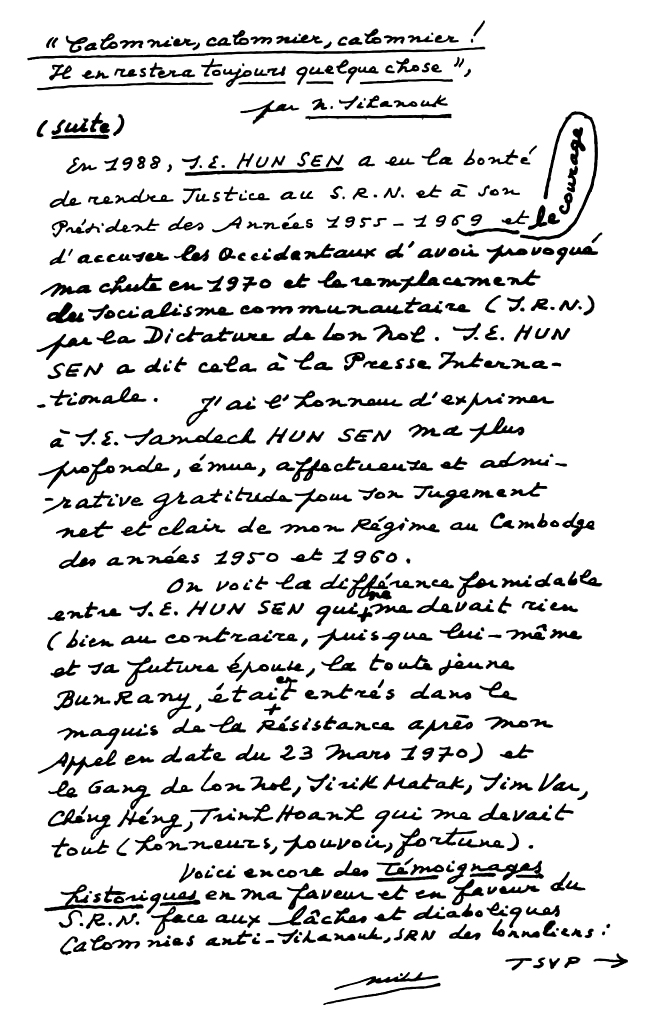 "Calomnier, calomnier, calomnier !
Il en restera toujours quelque chose",
par N. Sihanouk
(suite)
En 1988, S.E. HUN SEN a eu la bonté
de rendre Justice au S.R.N. et à son
Président des Années 1955-1969 et le courage
d'accuser les Occidentaux d'avoir provoqué
ma chute en 1970 et le remplacement
du Socialisme communautaire (S.R.N.)
par la Dictature de Lon Nol. S.E. HUN
SEN a dit cela à la Presse Interna-
-tionale. J'ai l'honneur d'exprimer
à S.E. Samdech HUN SEN ma plus
profonde, émue, affectueuse et admi-
-rative gratitude pour son Jugement
net et clair de mon Régime au Cambodge
des années 1950 et 1960.
On voit la différence formidable
entre S.E. HUN SEN qui ne me devait rien
(bien au contraire, puisque lui-même
et sa future épouse, la toute jeune
Bun Rany, étaient entrés dans le
maquis de la Résistance après mon
Appel en date du 23 Mars 1970) et
le Gang de Lon Nol, Sirik Matak, Sim Var,
Chéng Héng, Trinh Hoanh qui me devait
tout (honneurs, pouvoir, fortune).
Voici encore des témoignages
historiques en ma faveur et en faveur du
S.R.N. face aux lâches et diaboliques
Calomnies anti-Sihanouk, SRN des lonnoliens :
TSVP →